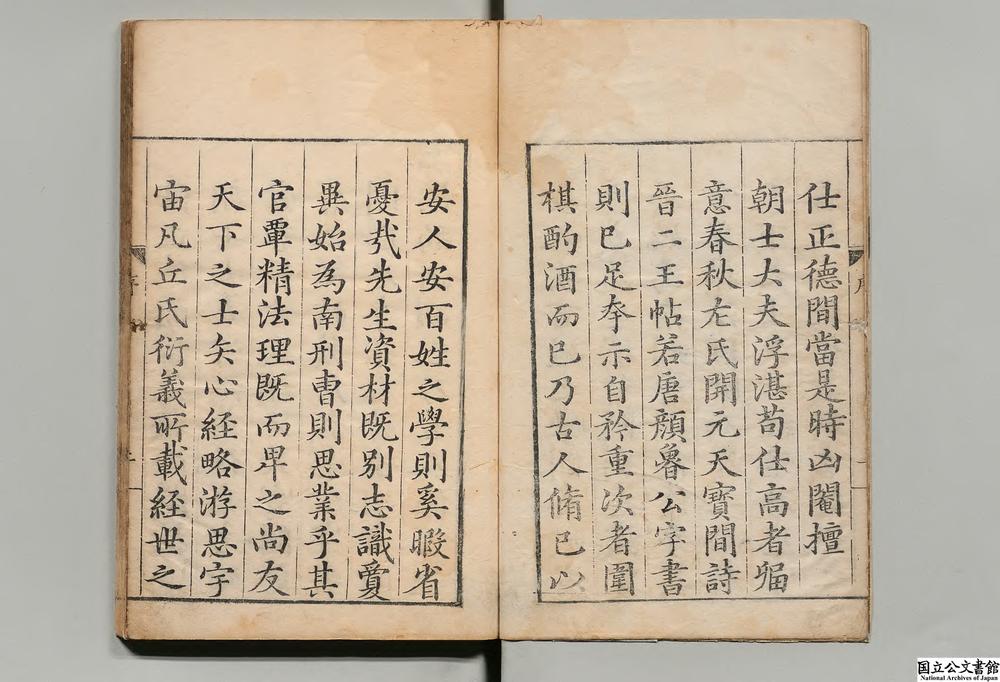 仕正德間當是時凶閹擅
朝士大夫浮湛苟仕高者
意春秋左氏開元天寶間詩
晉二王帖若唐顏魯公字書
則已足奉示自矜重次者圍
棋酌酒而已乃古人脩己以
安人安百姓之學則奚暇省
憂㢤先生資材既別志識爰
異始為南刑曹則思業乎其
官覃精法理既而畀之尚友
天下之士矢心経略游思宇
宙凡丘氏衍義所載経世之
序
国立公文書館
National Archives of Japan